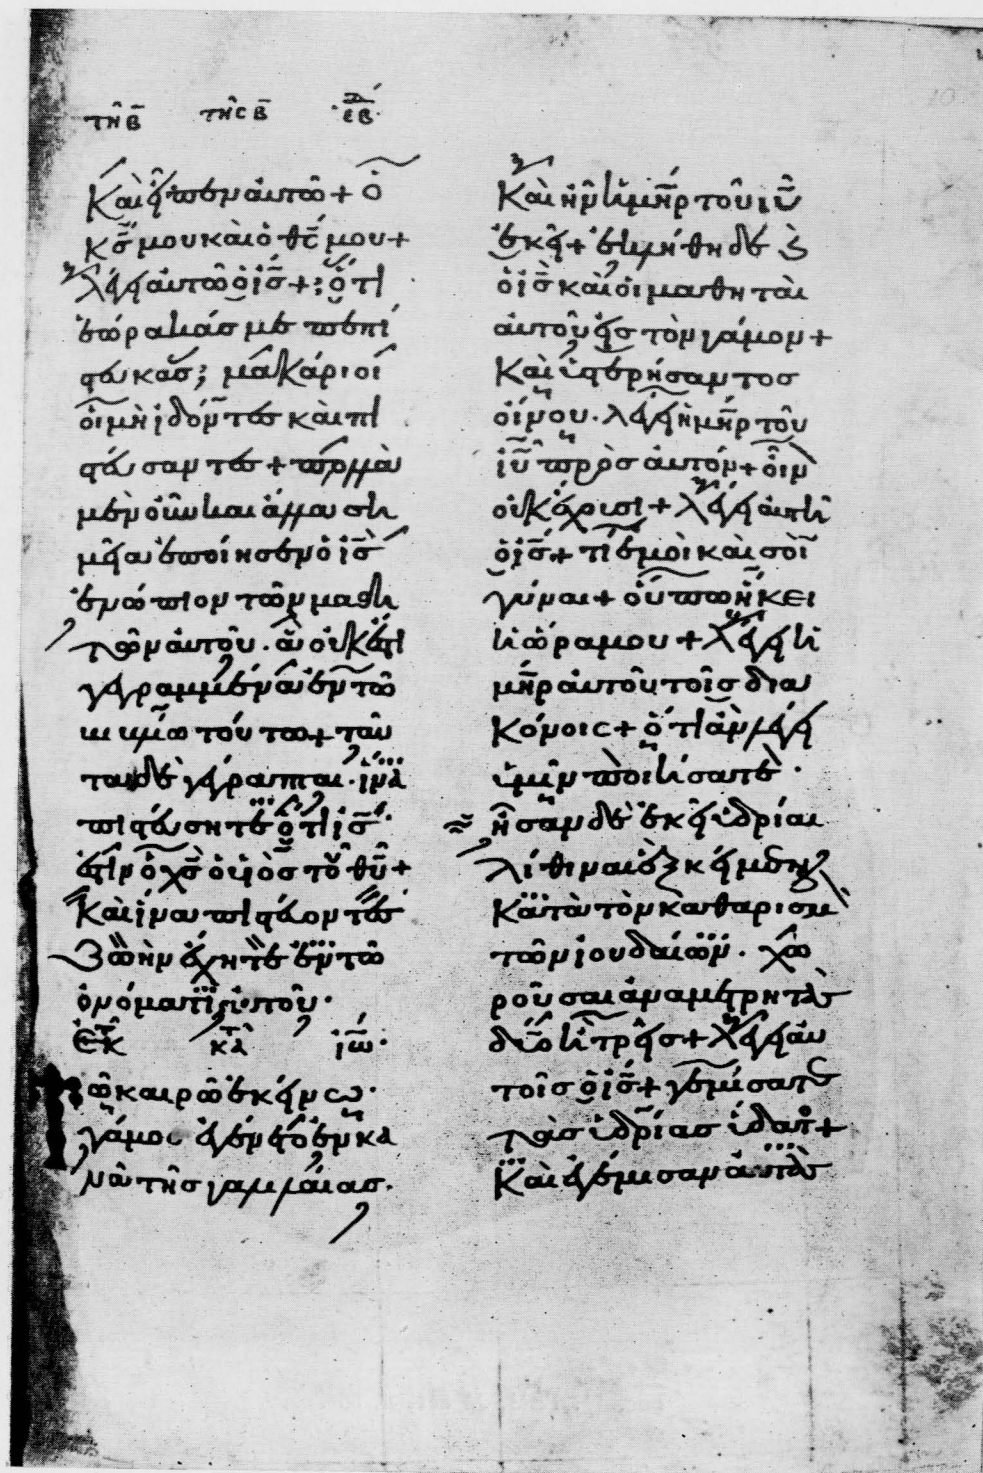 τῆ β̄ τῆς β̄ ἑβ
Καὶ εἶπεν αὐτῶ + ὁ
κ̄ς μου καὶ ὁ θ̄ς μου +
λέγει αὐτῶ ὁ ἰ̄ς + ; ὅτι
ἑώρακάσ με πεπί
στευκασ; μακάριοι
οἱ μὴ ἰδόντεσ καὶ πι
στεύσαντεσ + πολλὰ
μὲν οὖν καὶ ἄλλα ση
μεῖα ἐποίησεν ὁ ἰ̄ς
ἐνώπιον τῶν μαθη
τῶν αὐτοῦ . ἃ οὐκ ἔστι
γεγραμμένα ἐν τῶ
βιβλίω τούτω + ταῦ
τα δὲ γέγραπται . ἵνα
πιστεύσητε ὅτι ἰ̄ς
ἐστὶν ὁ χ̄ς ὁ υἱὸσ τοῦ θ̄υ +
Καὶ ἵνα πιστεύοντεσ
ζωὴν ἔχητε ἐν τῶ
ὀνόματι αὐτοῦ .
Ἐκ τοῦ κατὰ ἰω .
Τῶ καιρῶ ἐκείνω .
γάμοσ ἐγένετο ἐν κα
νᾶ τῆσ γαλιλαίασ .
Καὶ ἦν ἡ μ̄ηρ τοῦ ἰ̄υ
ἐκεῖ + ἐκλήθη δὲ καὶ
ὁ ἰ̄ς καὶ οἱ μαθηταὶ
αὐτοῦ εἰσ τὸν γάμον +
Καὶ ὑστερήσαντοσ
οἴνου . λέγει ἡ μ̄ηρ τοῦ
ἰ̄υ πρὸσ αὐτόν + οἶν
οὐκ ἔχουσι + λέγει αὐτῆ
ὁ ἰ̄ς + τί ἐμοὶ καὶ σοὶ
γύναι + οὔπω ἥκει
ἡ ὥρα μου + λέγει ἡ
μ̄ηρ αὐτοῦ τοῖσ δια
κόνοις + ὅτι ἂν λέγει
ὑμῖν ποιήσατε .
ἦσαν δὲ ἐκεῖ ὑδρίαι
λίθιναι ἓξ κείμεναι
Κατὰ τὸν καθαρισμ
τῶν ἰουδαίων . χω
ροῦσαι ἀνὰ μετρητὰσ
δύο ἢ τρεῖσ + λέγει αὐ
τοῖσ ὁ ἰ̄ς + γεμίσατε
τὰσ ὑδρίασ ὕδατοσ +
Καὶ ἐγέμισαν αὐτὰσ